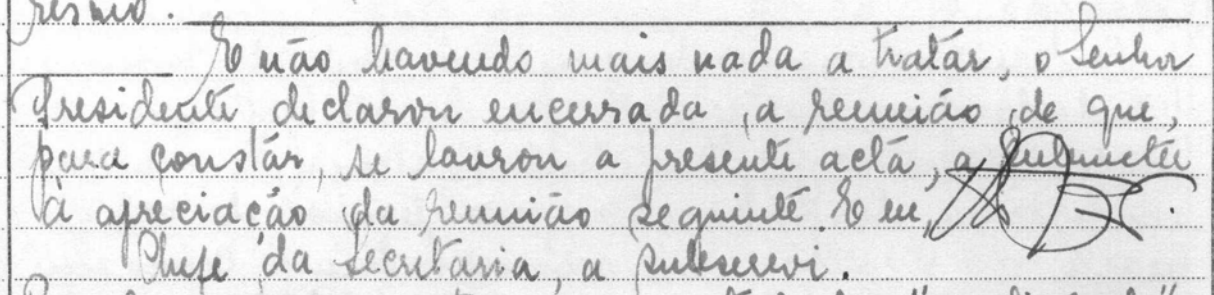 E não havendo mais nada a tratár, o Senhor
Presidente declarou encerrada, a reunião, de que,
para constár, se lavrou a presente actá, a submeter
à apreciação da reunião seguinte. E eu,
Chefe da Secretaria, a subscrevi.